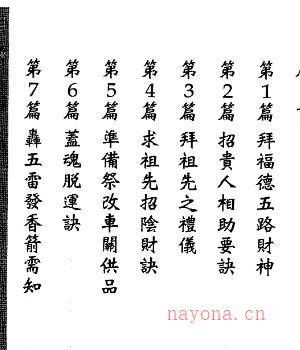 第1篇 拜福德五路財神
第2篇 招貴人相助要訣
第3篇 拜祖先之禮儀
第4篇 求祖先招陰財訣
第5篇 準備祭改車關供品
第6篇 蓋魂脫運訣
第7篇 轟五雷發香箭需知
nayona.cn